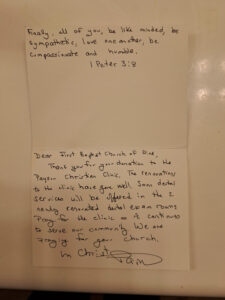 Finally, all of you, be like minded, be
sympathetic, love one another, be
compassionate and humble.
1 Peter 3:8
Dear First Baptist Church of Pine,
Thank you for your donation to the
Payson Christian Clinic. The renovations
to the clinic have gone well. Soon dental
services will be offered in the 2
newly renovated dental exam rooms.
Pray for the clinic as it continues
to serve our community. We are
praying for your church.
In Christ, Pam